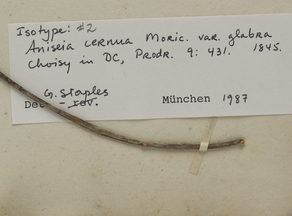 Isotype: #2
Aniseia cernua Moric. var. glabra
Choisy in DC, Prodr. 9: 431. 1845.
G. Staples
Det. – rev. München 1987